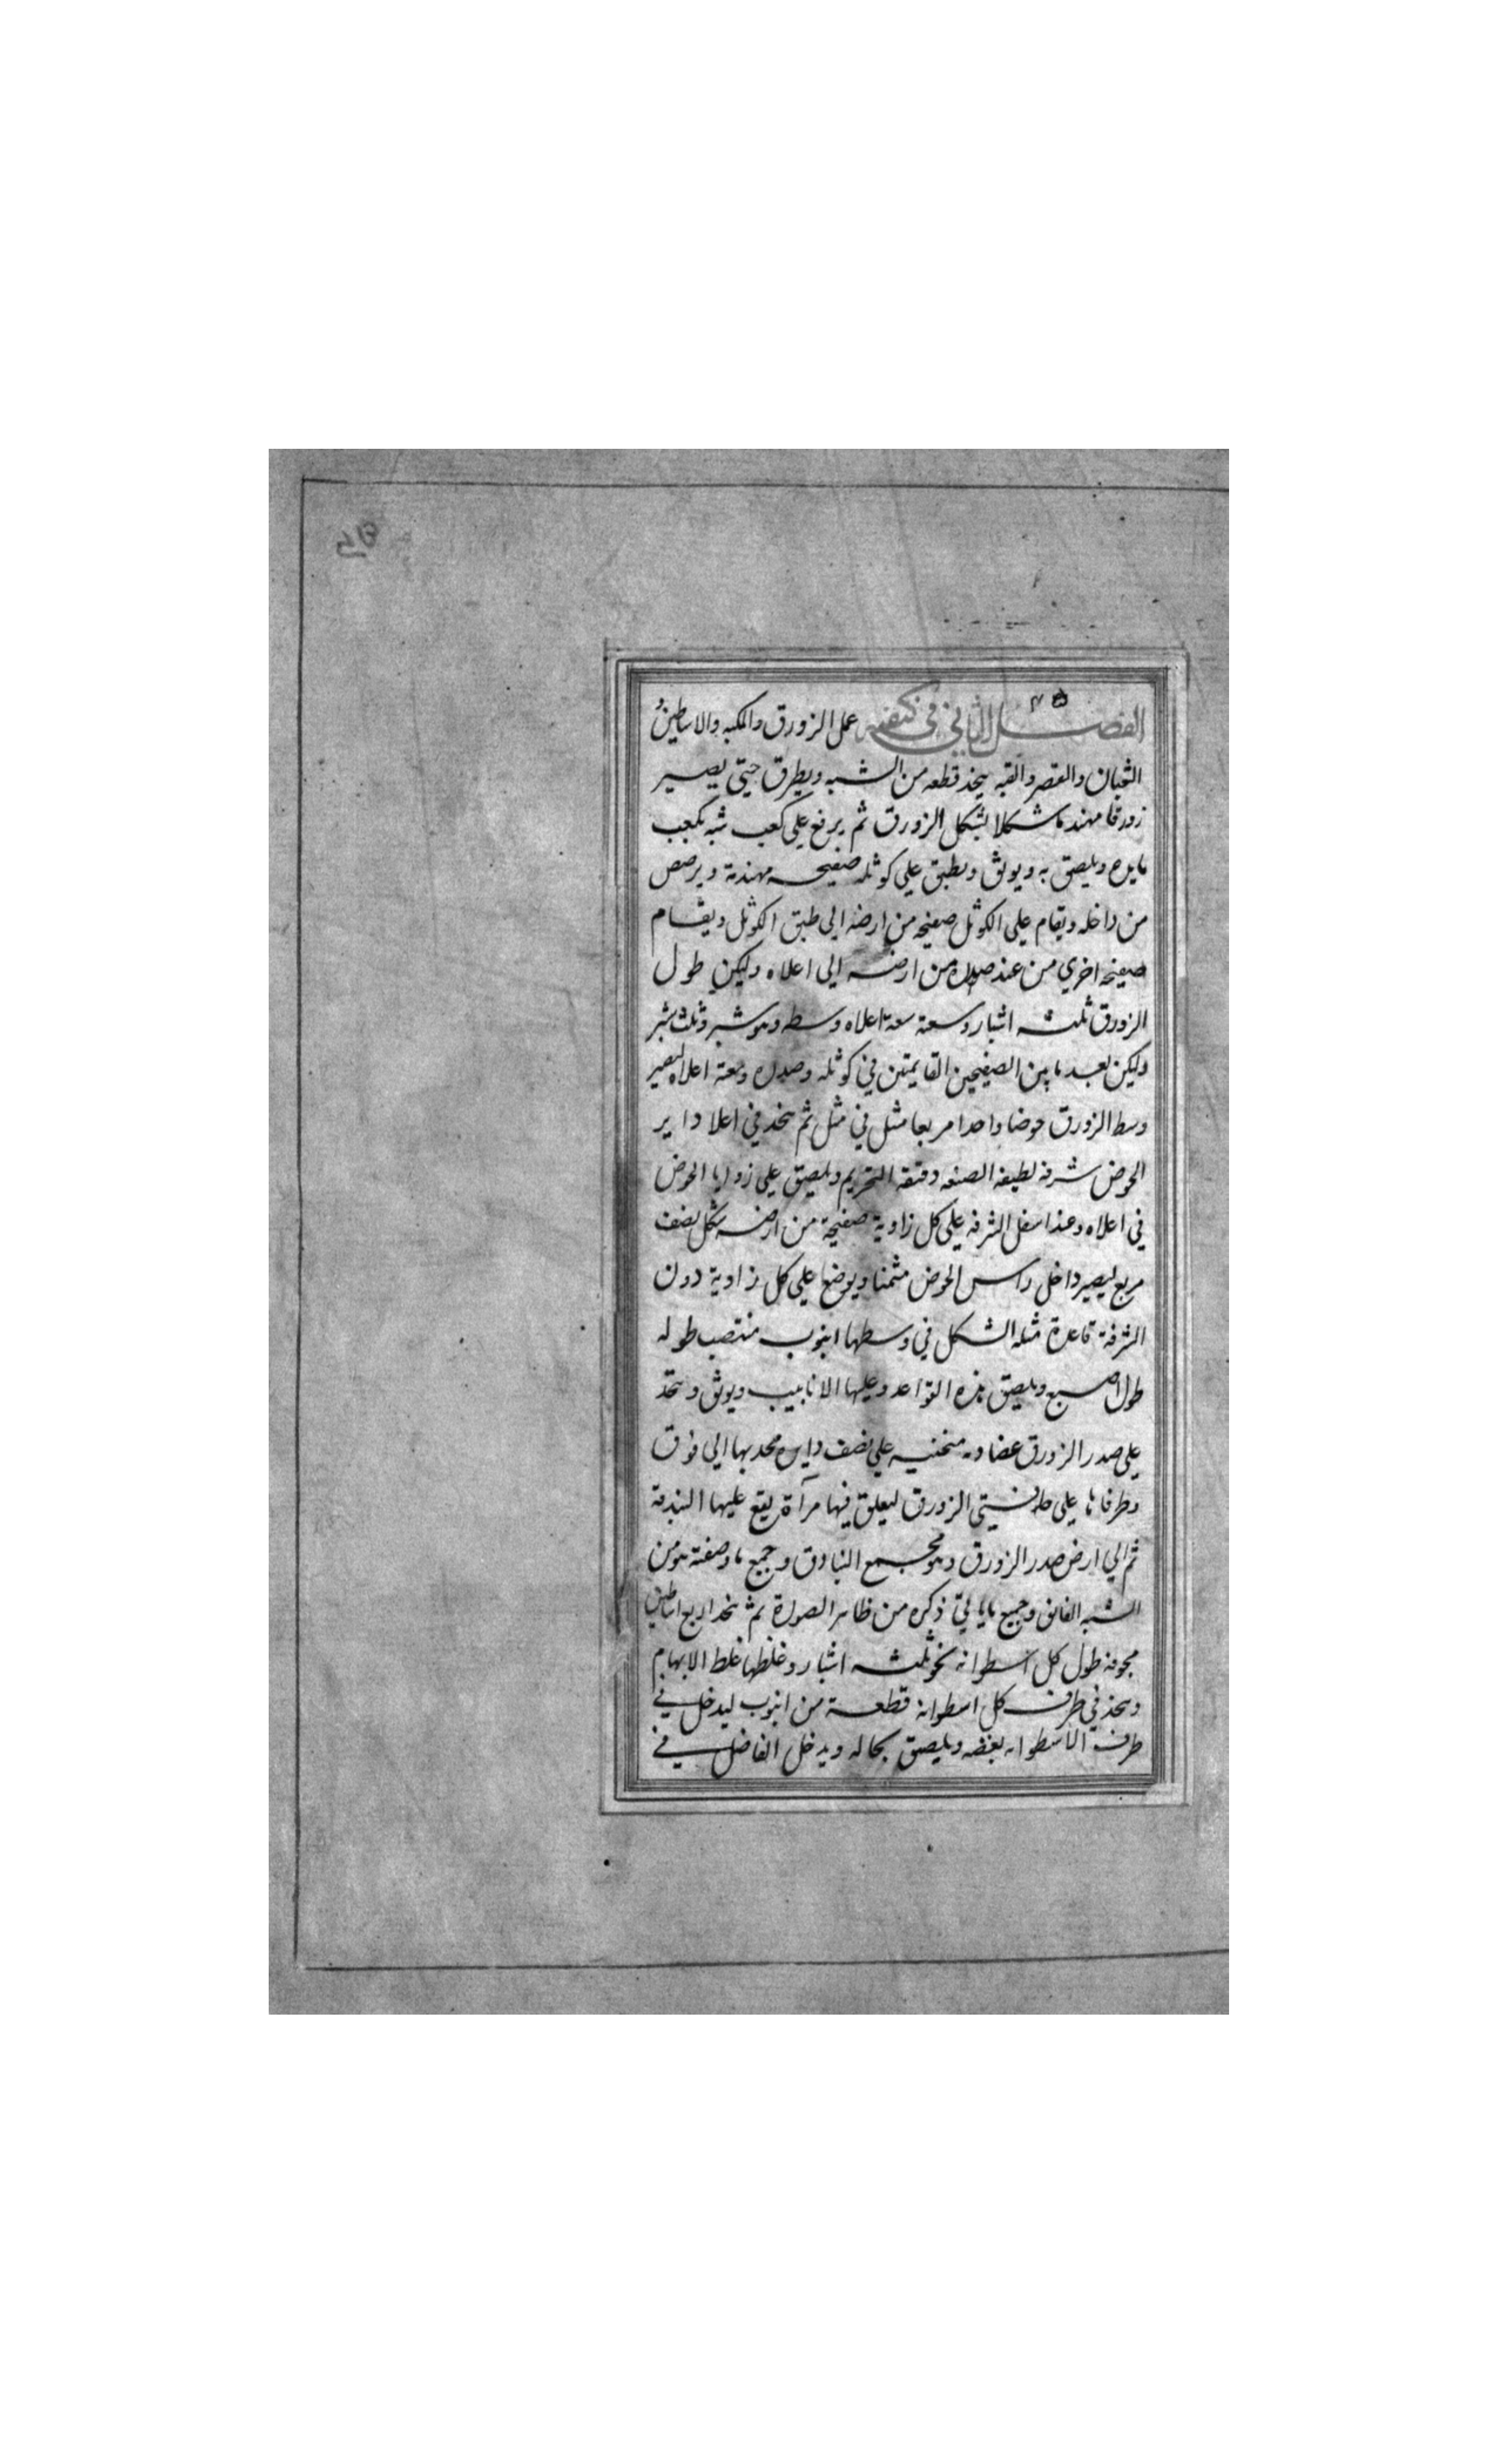 الفصل الثاني في كيفية عمل الزورق والمكبه والاساطين و
الثعبان والقصر والقبه يتخذ قطعه من الشبه ويطرق حتى يصير
زورقا مهندما شكلا بشكل الزورق ثم يرفع على كعب شبه بكعب
مايده ويلصق به ويوثق ويطبق على كوثله صفيحه مهندمة ويرصص
من داخله ويقام على الكوثل صفيحه من ارضه الى طبق الكوثل ويقام
صفيحه اخري من عند صدره من ارضه الى اعلاه وليكن طول
الزورق ثلثه اشبار وسعته سعة اعلاه وسطه وهو شبر وثلث شبر
وليكن بعد ما بين الصفيحتين القايمتين في كوثله وصدره وسعة اعلاه ليصير
وسط الزورق حوضا واحدا مربعا مثل في مثل ثم يتخذ في اعلا داير
الحوض شرفه لطيفه الصنعه دقيقه التخريم ويلصق على زوايا الحوض
في اعلاه وعند اسفل الشرفه على كل زاوية صفيحة من ارضه بشكل نصف
مربع ليصير داخل راس الحوض مثمنا ويوضع على كل زاوية دون
الشرفة قاعدة مثله الشكل في وسطها انبوب منتصب طوله
طول اصبع ويلصق هذه القواعد وعليها الانابيب ويوثق ويتخذ
على صدر الزورق عضاده منحنيه على نصف دايره محدبها الى فوق
وطرفاها على حافتي الزورق ليعلق فيها مرآة يقع عليها البندقة
ثم الى ارض صدر الزورق وهو مجمع البنادق وجميع ما وصفته هو من
الشبه الفائق وجميع ما ياتي ذكره من ظاهر الصورة ثم يتخذ اربع اساطين
مجوفه طول كل اسطوانه نحو ثلثه اشبار وغلظها غلظ الابهام
ويتخذ في طرف كل اسطوانة قطعة من انبوب ليدخل في
طرف الاسطوانه بعضه ويلصق بحاله ويدخل الفاضل في